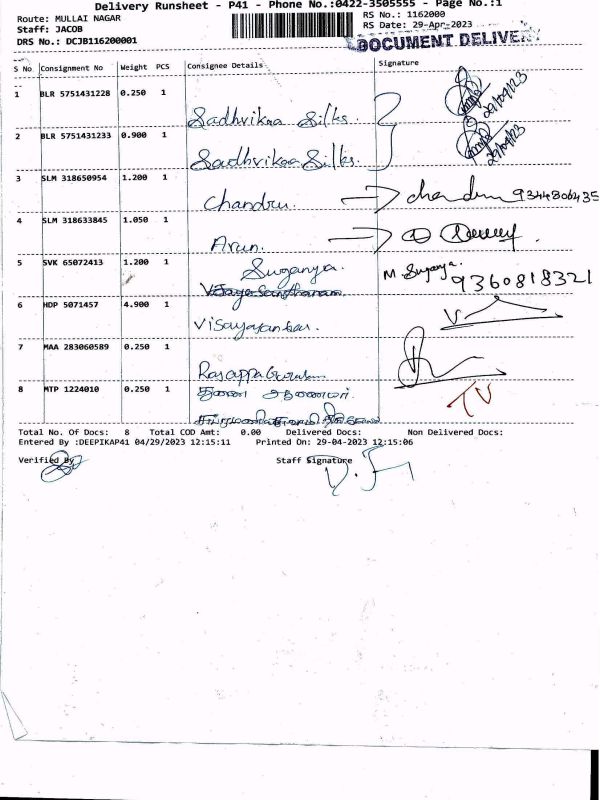 Delivery Runsheet - P41 - Phone No.:0422-3505555 - Page No.:1
Route: MULLAI NAGAR
RS No.: 1162000
Staff: JACOB
RS Date: 29-Apr-2023
DRS No.: DCJB116200001
DOCUMENT DELIVERY
S No Consignment No Weight PCS Consignee Details Signature
1 BLR 5751431228 0.250 1
Sadhvikaa Silks.
29/04/23
2 BLR 5751431233 0.900 1
Sadhvikaa Silks.
29/04/23
3 SLM 318650954 1.200 1
Chandru. chandru 9344806435
4 SLM 318633845 1.050 1
Arun.
5 SVK 65072413 1.200 1
Suganya. M. Suganya. 9360818321
6 HDP 5071457 4.900 1
7 MAA 283060589 0.250 1
8 MTP 1224010 0.250 1
TV
Total No. Of Docs: 8 Total COD Amt: 0.00 Delivered Docs: Non Delivered Docs:
Entered By :DEEPIKAP41 04/29/2023 12:15:11 Printed On: 29-04-2023 12:15:06
Verified By Staff Signature